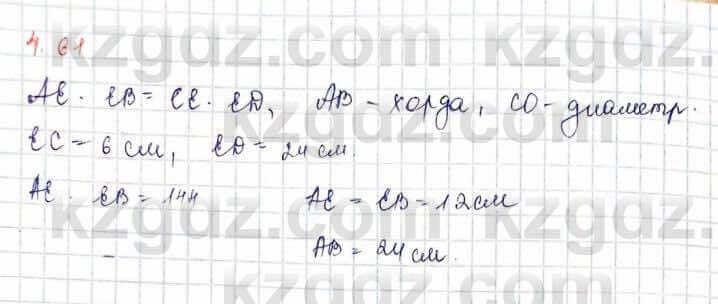 4.61
AE · EB = CE · ED, AB - хорда, CO - диаметр.
EC = 6 см, ED = 24 см.
AE · EB = 144 AE = EB = 12 см
AB = 24 см.
kzgdz.com kzgdz.com